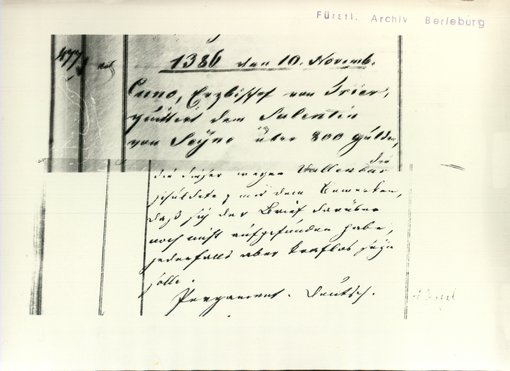 Fürstl. Archiv Berleburg
477
1386 den 10. Novemb.
Cuno, Erzbischof von Trier,
quittirt dem Salentin
von Seyne über 800 gulden,
die dieser wegen Vallendar
schuldete, mit dem Bemerken,
daß sich der Brief darüber
noch nicht aufgefunden habe,
jedenfalls aber kraftlos seyn
solle.
Pergament. Deutsch.